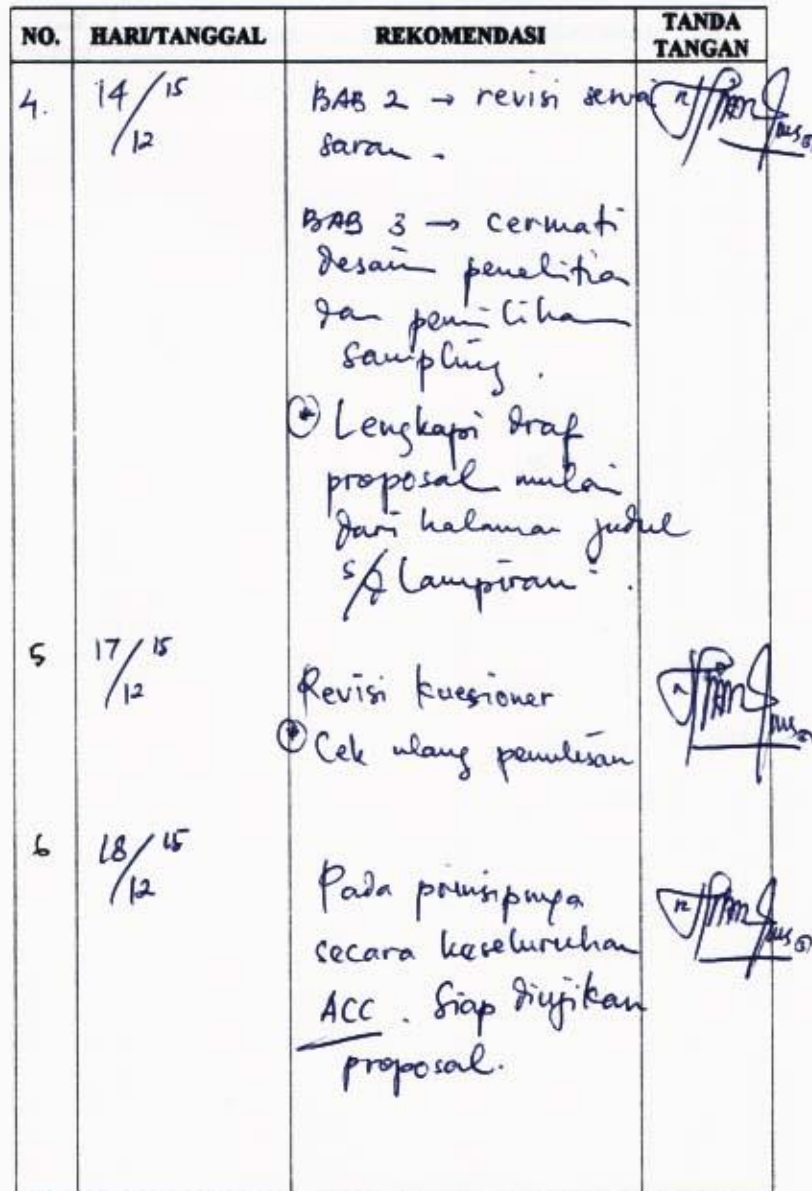 NO. HARI/TANGGAL REKOMENDASI TANDA TANGAN
4. 14/12 15 BAB 2 → revisi sesuai
saran.
BAB 3 → cermati
desain penelitian
dan pemilihan
sampling.
* Lengkapi draf
proposal mulai
dari halaman judul
s/d lampiran.
5 17/12 15 Revisi kuesioner
* Cek ulang penulisan
6 18/12 15 Pada prinsipnya
secara keseluruhan
ACC. Siap diujikan
proposal.